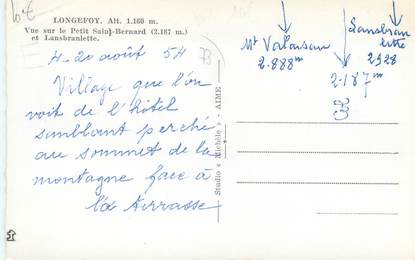 10€
LONGEFOY. Alt. 1.160 m.
Vue sur le Petit Saint-Bernard (2.187 m.)
et Lansbranlette.
4-20 août 54
73
Village que l'on
voit de l'hôtel
semblant perché
au sommet de la
montagne face à
la terrasse
Studio « Michèle » - AIME
Mt Valaisan
2.888m
2.187m
Col
Lansbran
lette
2928